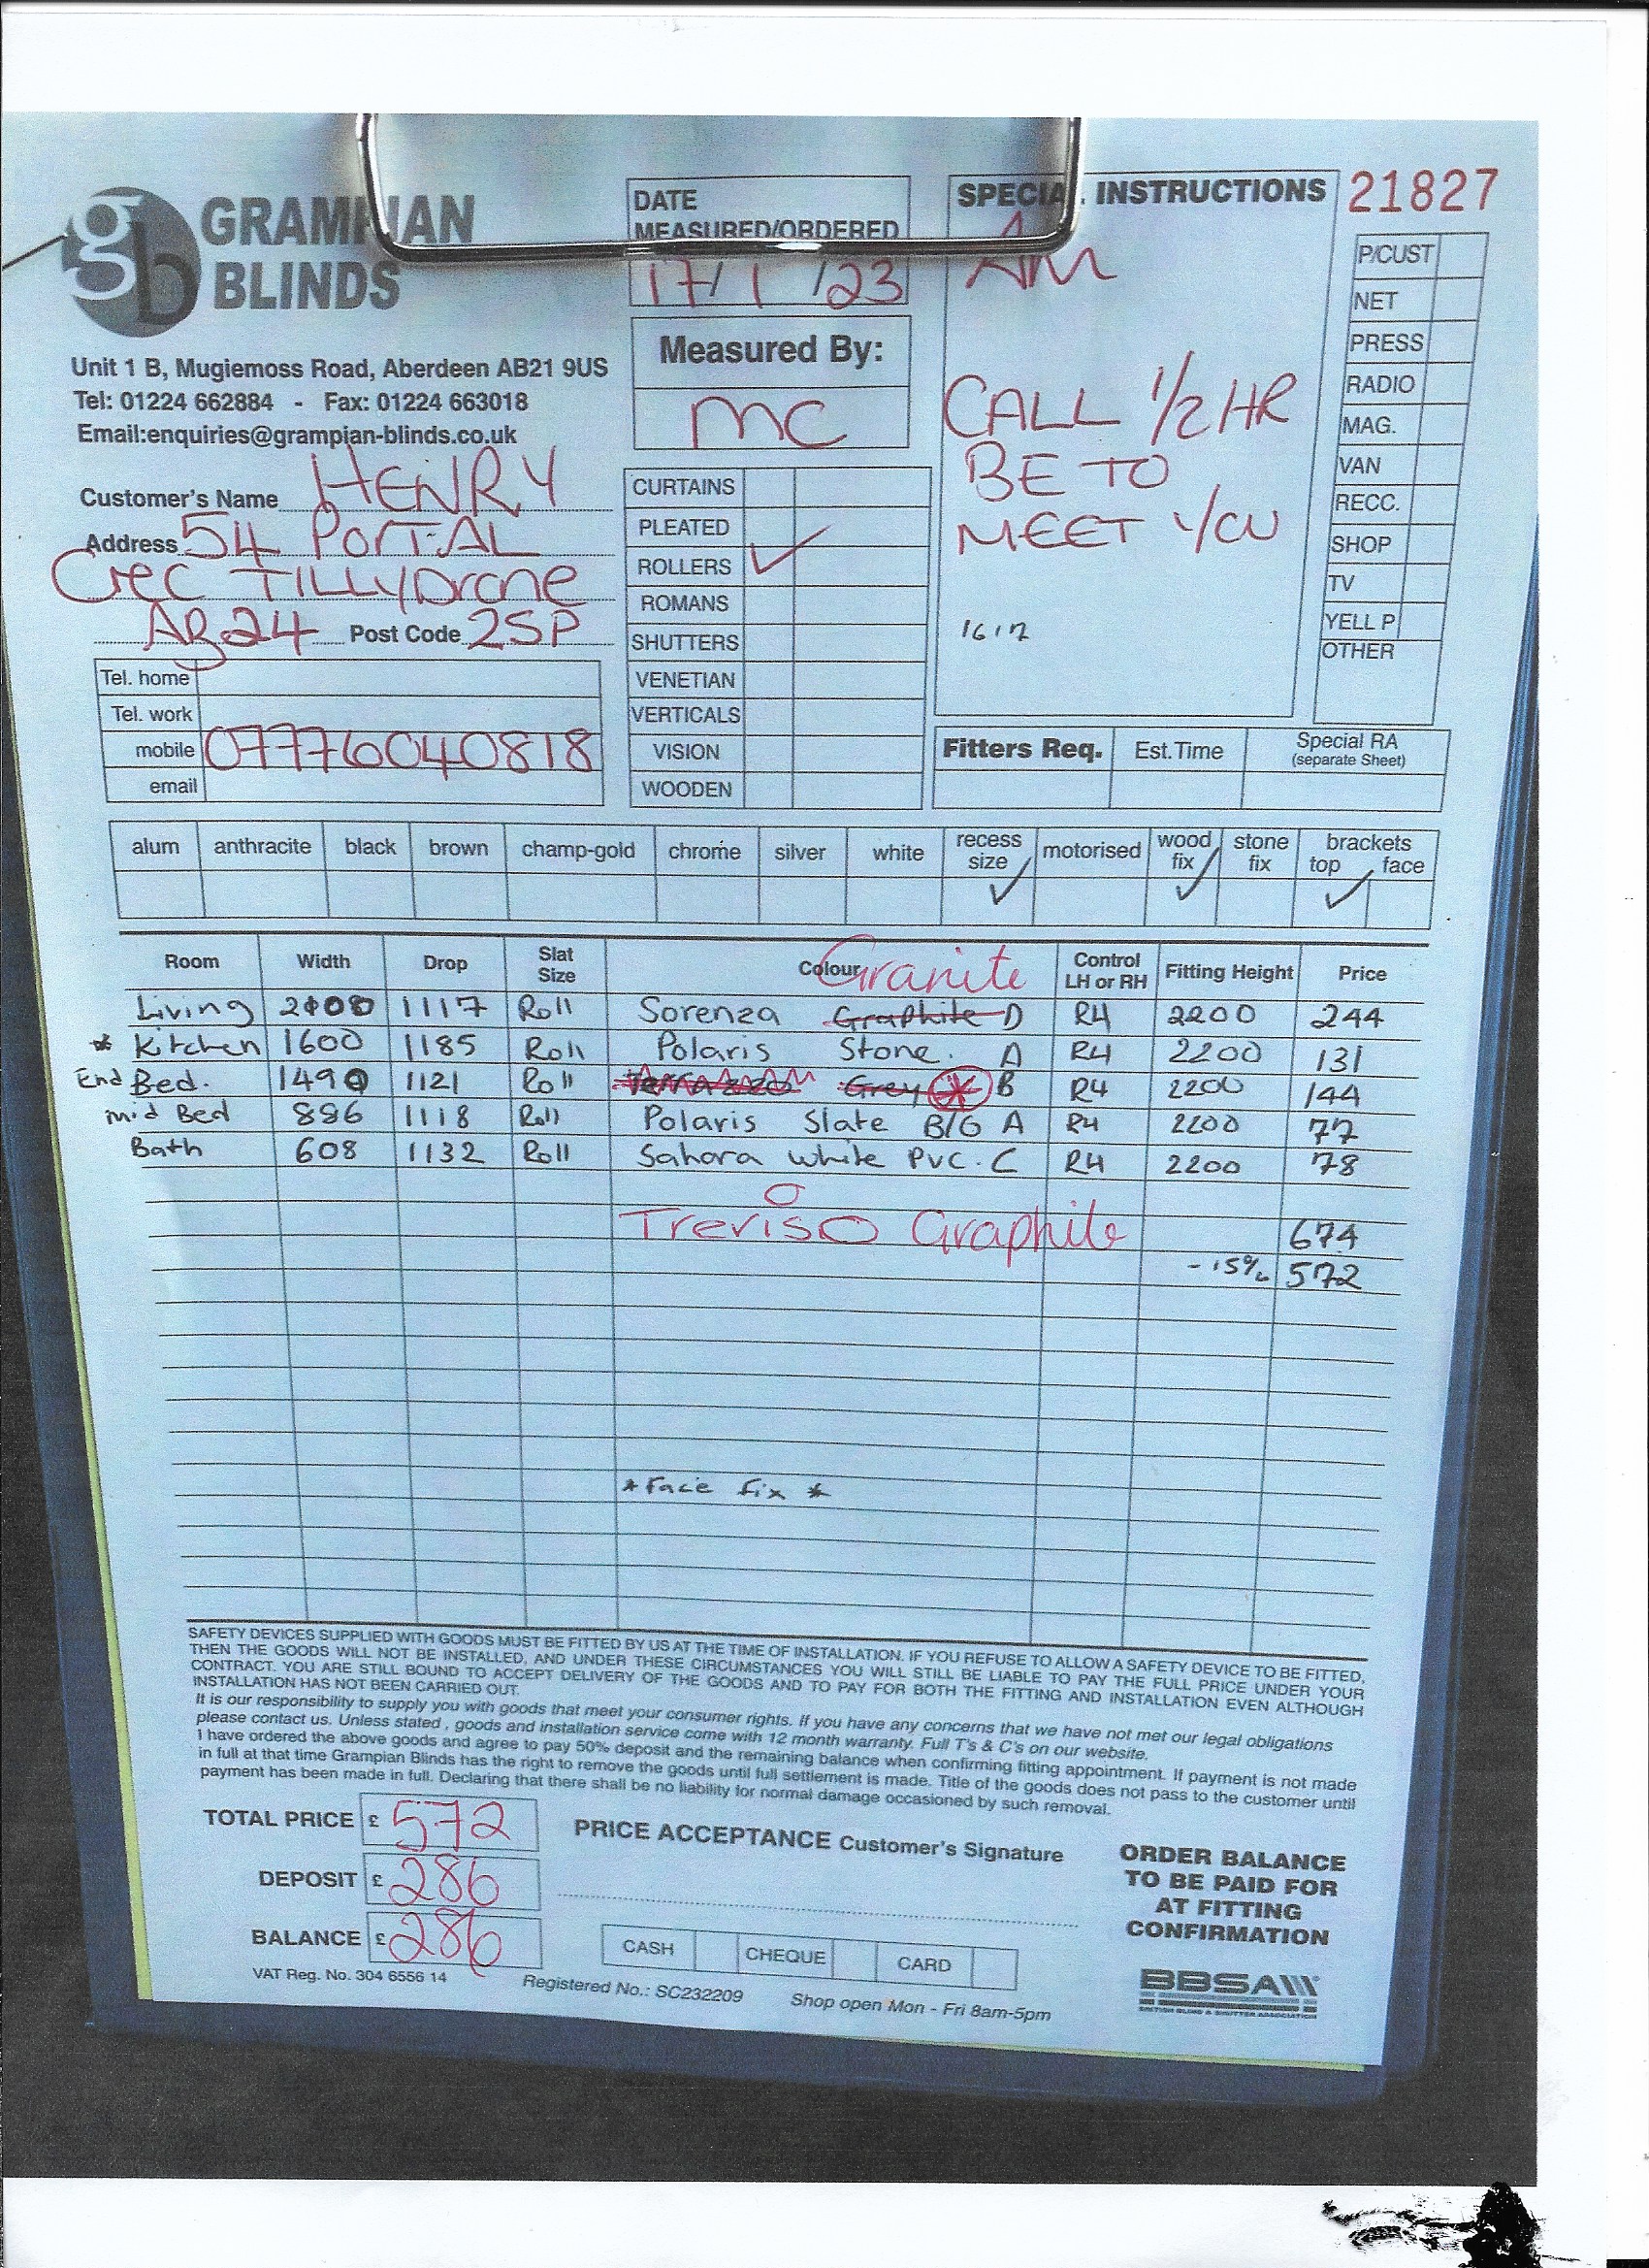 GRAMPIAN BLINDS
Unit 1 B, Mugiemoss Road, Aberdeen AB21 9US
Tel: 01224 662884 - Fax: 01224 663018
Email:enquiries@grampian-blinds.co.uk
Customer's Name HENRY
Address 54 PORTAL
Crec TILLYDrone
AB24 Post Code 2SP
Tel. home
Tel. work
mobile 07776040818
email
DATE
MEASURED/ORDERED
17/1/23
Measured By:
MC
CURTAINS
PLEATED
ROLLERS ✓
ROMANS
SHUTTERS
VENETIAN
VERTICALS
VISION
WOODEN
SPECIAL INSTRUCTIONS
AM
CALL 1/2 HR
BE TO
MEET Y/CU
1617
21827
P/CUST
NET
PRESS
RADIO
MAG.
VAN
RECC.
SHOP
TV
YELL P
OTHER
Fitters Req. Est.Time Special RA
(separate Sheet)
alum anthracite black brown champ-gold chrome silver white recess size ✓ motorised wood fix ✓ stone fix brackets top ✓ face
Room Width Drop Slat Size Colour Granite Control LH or RH Fitting Height Price
Living 2008 1117 Roll Sorenza Graphite D R4 2200 244
* Kitchen 1600 1185 Roll Polaris Stone. A R4 2200 131
End Bed. 1490 1121 Roll Terrazzo Grey * B R4 2200 144
mid Bed 886 1118 Roll Polaris Slate B/G A R4 2200 77
Bath 608 1132 Roll Sahara white PVC. C R4 2200 78
Treviso Graphite 674
-15% 572
* Face fix *
SAFETY DEVICES SUPPLIED WITH GOODS MUST BE FITTED BY US AT THE TIME OF INSTALLATION. IF YOU REFUSE TO ALLOW A SAFETY DEVICE TO BE FITTED,
THEN THE GOODS WILL NOT BE INSTALLED, AND UNDER THESE CIRCUMSTANCES YOU WILL STILL BE LIABLE TO PAY THE FULL PRICE UNDER YOUR
CONTRACT. YOU ARE STILL BOUND TO ACCEPT DELIVERY OF THE GOODS AND TO PAY FOR BOTH THE FITTING AND INSTALLATION EVEN ALTHOUGH
INSTALLATION HAS NOT BEEN CARRIED OUT.
It is our responsibility to supply you with goods that meet your consumer rights. If you have any concerns that we have not met our legal obligations
please contact us. Unless stated , goods and installation service come with 12 month warranty. Full T's & C's on our website.
I have ordered the above goods and agree to pay 50% deposit and the remaining balance when confirming fitting appointment. If payment is not made
in full at that time Grampian Blinds has the right to remove the goods until full settlement is made. Title of the goods does not pass to the customer until
payment has been made in full. Declaring that there shall be no liability for normal damage occasioned by such removal.
TOTAL PRICE £ 572
DEPOSIT £ 286
BALANCE £ 286
PRICE ACCEPTANCE Customer's Signature
CASH CHEQUE CARD
ORDER BALANCE
TO BE PAID FOR
AT FITTING
CONFIRMATION
VAT Reg. No. 304 6556 14
Registered No.: SC232209
Shop open Mon - Fri 8am-5pm
BBSA
BRITISH BLIND & SHUTTER ASSOCIATION